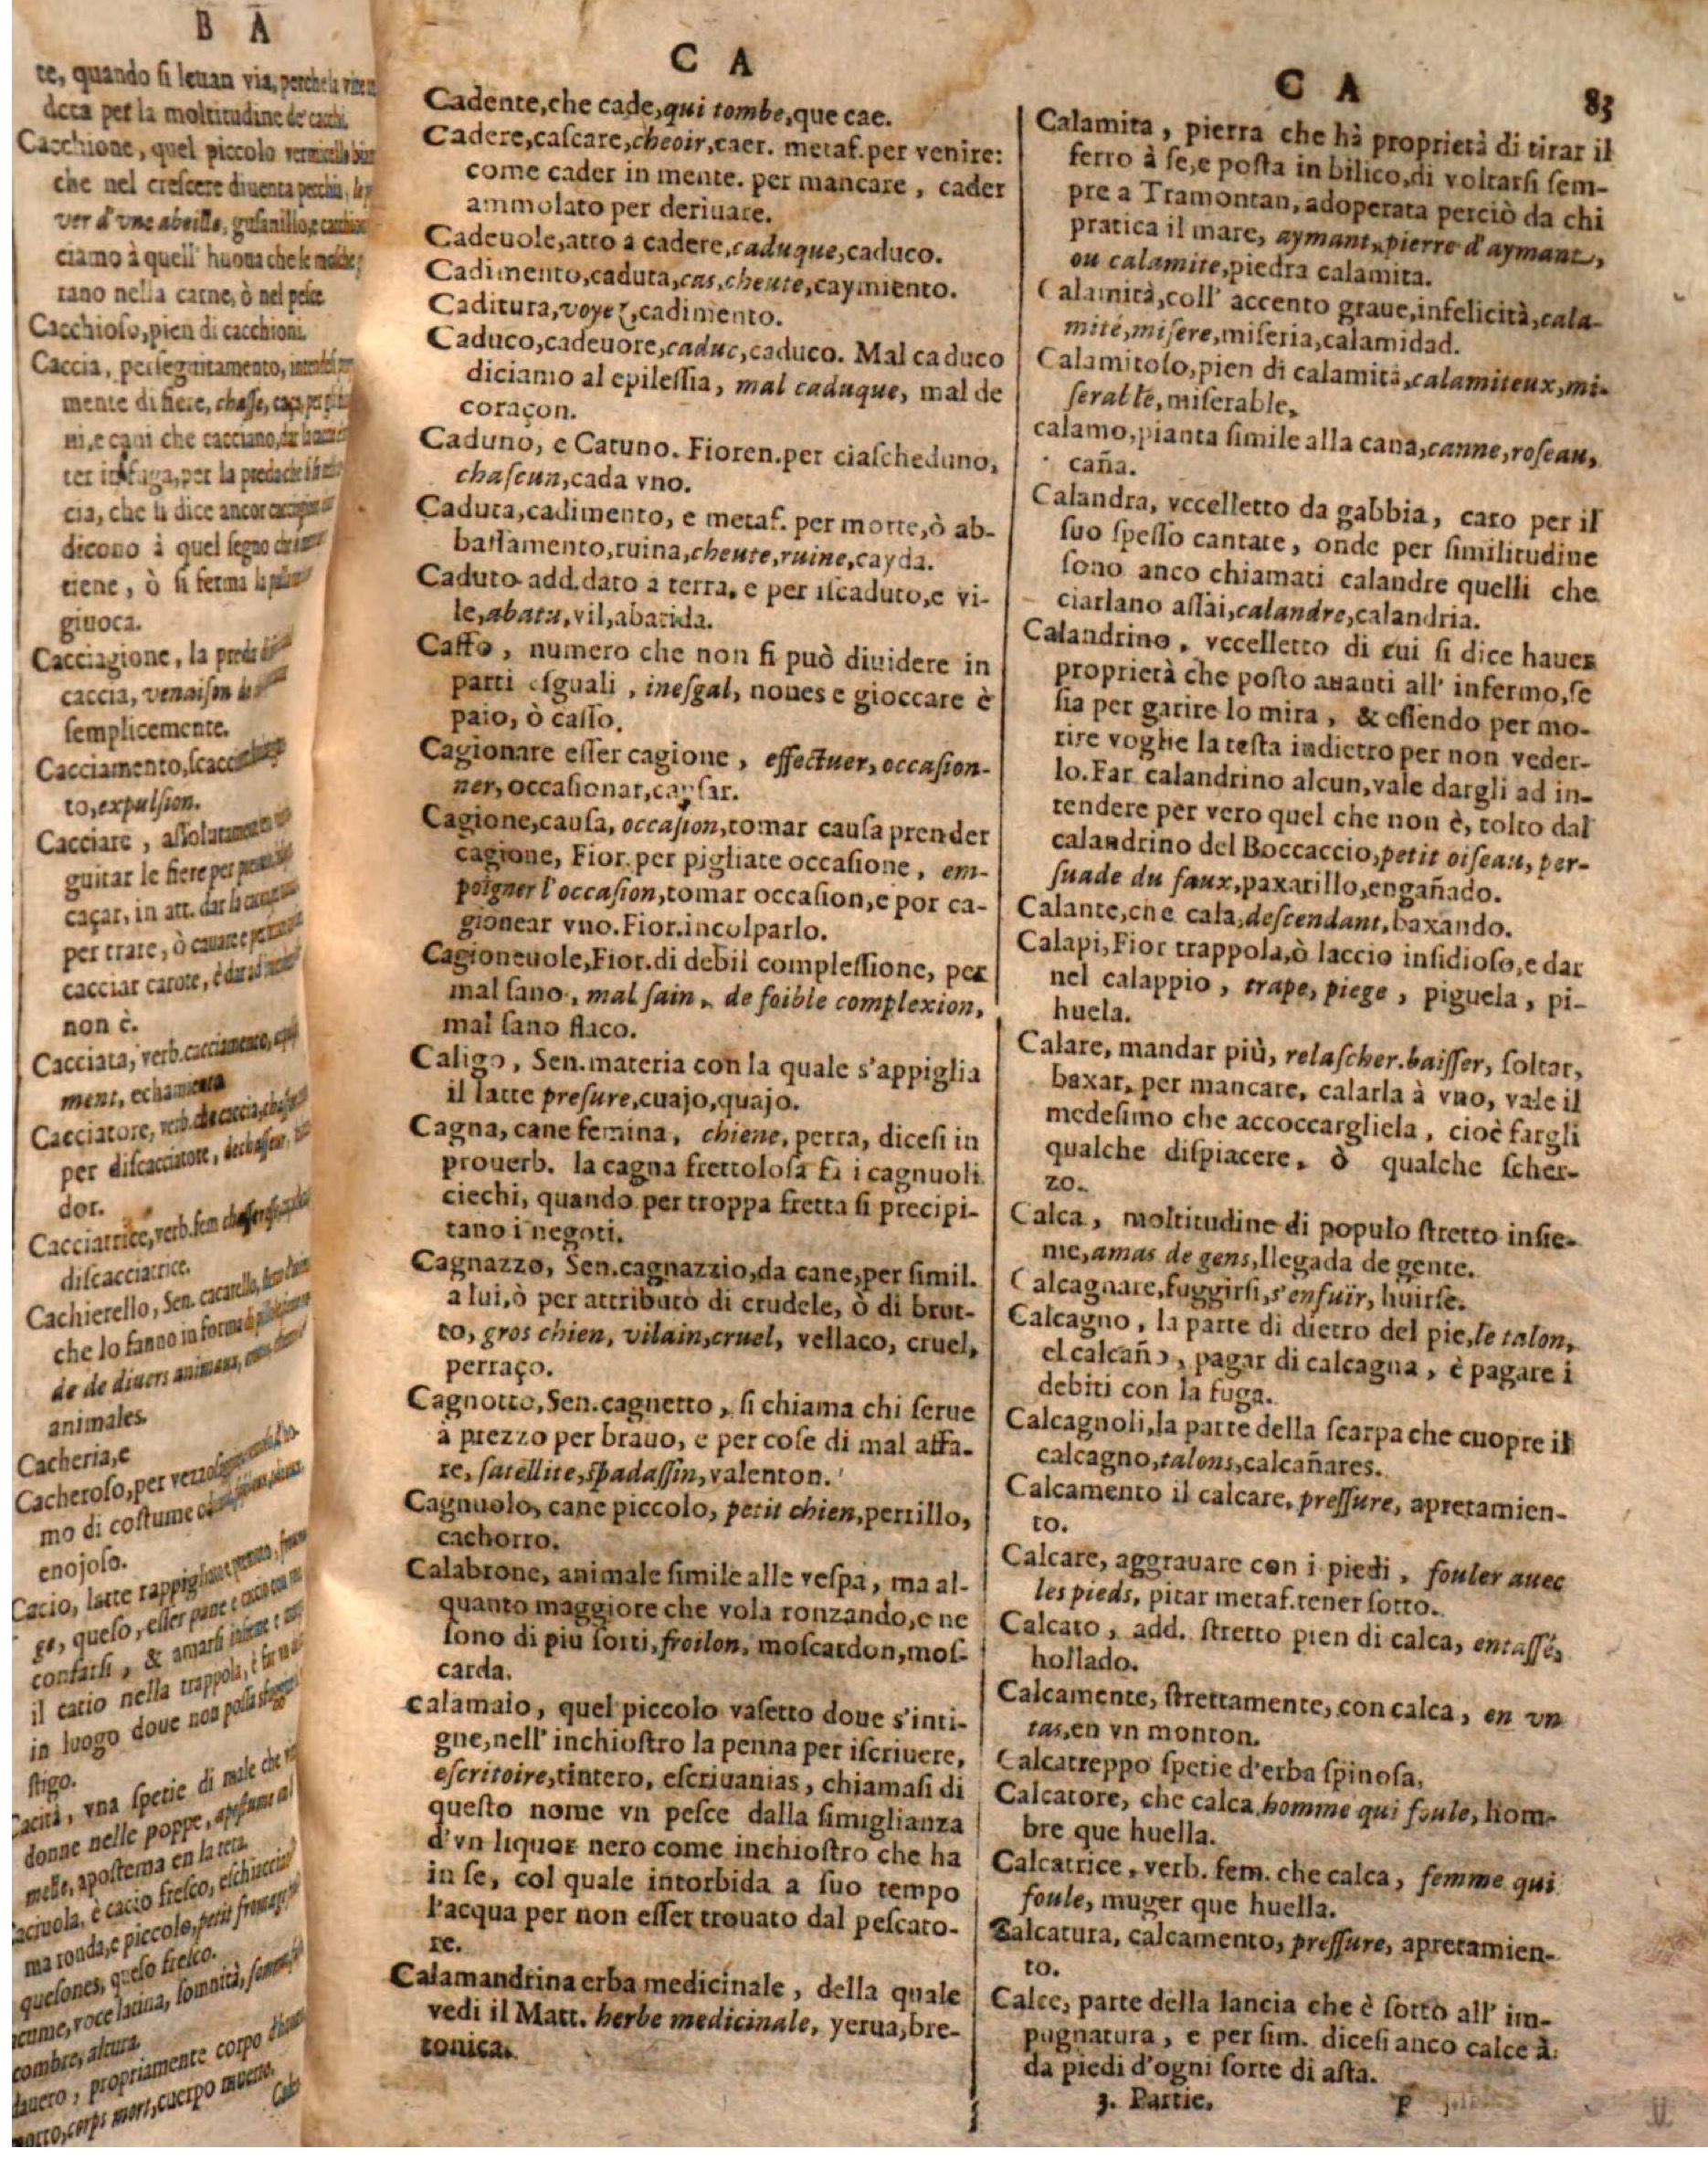 B A
te, quando ſi leuan via, perche la
detta per la moltitudine de' cacchi.
Cacchione, quel piccolo vermicello
che nel creſcere diuenta pecchia,
ver d'vne abeille, guſanillo,
ciamo à quell' huoua che le moſche
rano nella carne, ò nel peſce
Cacchioſo, pien di cacchioni.
Caccia, perſeguitamento,
mente di fiere, chaſſe, caça,
ni, e cani che cacciano,
ter in fuga, per la preda che
cia, che ſi dice ancor
dicono à quel ſegno
tiene, ò ſi ferma la
giuoca.
Cacciagione, la preda
caccia, venaiſon
ſemplicemente.
Cacciamento,
to, expulſion.
Cacciare, aſſolutamente
guitar le fiere per
caçar, in att. dar la
per trare, ò cauare e
cacciar carote, è dar ad
non è.
Cacciata, verb. cacciamento,
ment, echamiento
Cacciatore, verb. che caccia,
per diſcacciatore,
dor.
Cacciatrice, verb. fem
diſcacciatrice.
Cachierello, Sen. cacarello,
che lo fanno in forma di
de de diuers animaux,
animales.
Cacheria, e
Cacheroſo, per
mo di coſtume
enojoſo.
Cacio, latte rappigliato
ge, queſo, eſſer pane e cacio
confarſi, & amarſi
il catio nella trappola, è
in luogo doue non poſſa
ſtigo.
vna ſpetie di male che
donne nelle poppe,
apoſtema en la teta.
è cacio freſco,
ma tonda, e piccolo, petit fromage
queſones, queſo freſco.
voce latina, ſommità,
combre, altura.
propriamente corpo
corps mort, cuerpo muerto.
C A
Cadente, che cade, qui tombe, que cae.
Cadere, caſcare, cheoir, caer. metaf. per venire:
come cader in mente. per mancare, cader
ammolato per deriuare.
Cadeuole, atto à cadere, caduque, caduco.
Cadimento, caduta, cas, cheute, caymiento.
Caditura, voyez, cadimento.
Caduco, cadeuore, caduc, caduco. Mal caduco
diciamo al epileſſia, mal caduque, mal de
coraçon.
Caduno, e Catuno. Fioren. per ciaſcheduno,
chaſcun, cada vno.
Caduta, cadimento, e metaf. per morte, ò ab-
baſſamento, ruina, cheute, ruine, cayda.
Caduto add. dato a terra, e per iſcaduto, e vi-
le, abatu, vil, abatida.
Caffo, numero che non ſi può diuidere in
parti eſguali, ineſgal, nones e gioccare è
paio, ò caſſo.
Cagionare eſſer cagione, effectuer, occaſion-
ner, occaſionar, cauſar.
Cagione, cauſa, occaſion, tomar cauſa prender
cagione, Fior. per pigliate occaſione, em-
poigner l'occaſion, tomar occaſion, e por ca-
gionear vno. Fior. incolparlo.
Cagioneuole, Fior. di debil compleſſione, per
mal ſano, mal ſain, de foible complexion,
mal ſano flaco.
Caligo, Sen. materia con la quale s'appiglia
il latte preſure, cuajo, quajo.
Cagna, cane femina, chiene, perra, diceſi in
prouerb. la cagna frettoloſa fà i cagnuoli
ciechi, quando per troppa fretta ſi precipi-
tano i negoti.
Cagnazzo, Sen. cagnazzio, da cane, per ſimil.
a lui, ò per attributo di crudele, ò di brut-
to, gros chien, vilain, cruel, vellaco, cruel,
perraço.
Cagnotto, Sen. cagnetto, ſi chiama chi ſerue
à prezzo per brauo, e per coſe di mal affa-
re, ſatellite, ſpadaſſin, valenton.
Cagnuolo, cane piccolo, petit chien, perrillo,
cachorro.
Calabrone, animale ſimile alle veſpa, ma al-
quanto maggiore che vola ronzando, e ne
ſono di piu ſorti, froilon, moſcardon, moſ-
carda.
calamaio, quel piccolo vaſetto doue s'inti-
gne, nell' inchioſtro la penna per iſcriuere,
eſcritoire, tintero, eſcriuanias, chiamaſi di
queſto nome vn peſce dalla ſimiglianza
d'vn liquor nero come inchioſtro che ha
in ſe, col quale intorbida a ſuo tempo
l'acqua per non eſſer trouato dal peſcato-
re.
Calamandrina erba medicinale, della quale
vedi il Matt. herbe medicinale, yerua, bre-
tonica.
C A 83
Calamita, pierra che hà proprietà di tirar il
ferro à ſe, e poſta in bilico, di voltarſi ſem-
pre a Tramontan, adoperata perciò da chi
pratica il mare, aymant, pierre d'aymant,
ou calamite, piedra calamita.
Calamità, coll' accento graue, infelicità, cala-
mité, miſere, miſeria, calamidad.
Calamitoſo, pien di calamità, calamiteux, mi-
ſerable, miſerable.
calamo, pianta ſimile alla cana, canne, roſeau,
caña.
Calandra, vccelletto da gabbia, caro per il
ſuo ſpeſſo cantate, onde per ſimilitudine
ſono anco chiamati calandre quelli che
ciarlano aſſai, calandre, calandria.
Calandrino, vccelletto di cui ſi dice hauer
proprietà che poſto auanti all' infermo, ſe
ſia per garire lo mira, & eſſendo per mo-
rire voglie la teſta indietro per non veder-
lo. Far calandrino alcun, vale dargli ad in-
tendere per vero quel che non è, tolto dal
calandrino del Boccaccio, petit oiſeau, per-
ſuade du faux, paxarillo, engañado.
Calante, che cala, deſcendant, baxando.
Calapi, Fior trappola, ò laccio inſidioſo, e dar
nel calappio, trape, piege, piguela, pi-
huela.
Calare, mandar più, relaſcher. baiſſer, ſoltar,
baxar, per mancare, calarla à vno, vale il
medeſimo che accoccargliela, cioè fargli
qualche diſpiacere, ò qualche ſcher-
zo.
Calca, moltitudine di populo ſtretto inſie-
me, amas de gens, llegada de gente.
Calcagnare, fuggirſi, s'enfuïr, huirſe.
Calcagno, la parte di dietro del pie, le talon,
el calcaño, pagar di calcagna, è pagare i
debiti con la fuga.
Calcagnoli, la parte della ſcarpa che cuopre il
calcagno, talons, calcañares.
Calcamento il calcare, preſſure, apretamien-
to.
Calcare, aggrauare con i piedi, fouler auec
les pieds, pitar metaf. tener ſotto.
Calcato, add. ſtretto pien di calca, entaſſé,
hollado.
Calcamente, ſtrettamente, con calca, en vn
tas, en vn monton.
Calcatreppo ſpetie d'erba ſpinoſa,
Calcatore, che calca, homme qui foule, hom-
bre que huella.
Calcatrice, verb. fem. che calca, femme qui
foule, muger que huella.
Calcatura, calcamento, preſſure, apretamien-
to.
Calce, parte della lancia che è ſotto all' im-
pugnatura, e per ſim. diceſi anco calce à
da piedi d'ogni ſorte di aſta.
3. Partie. P